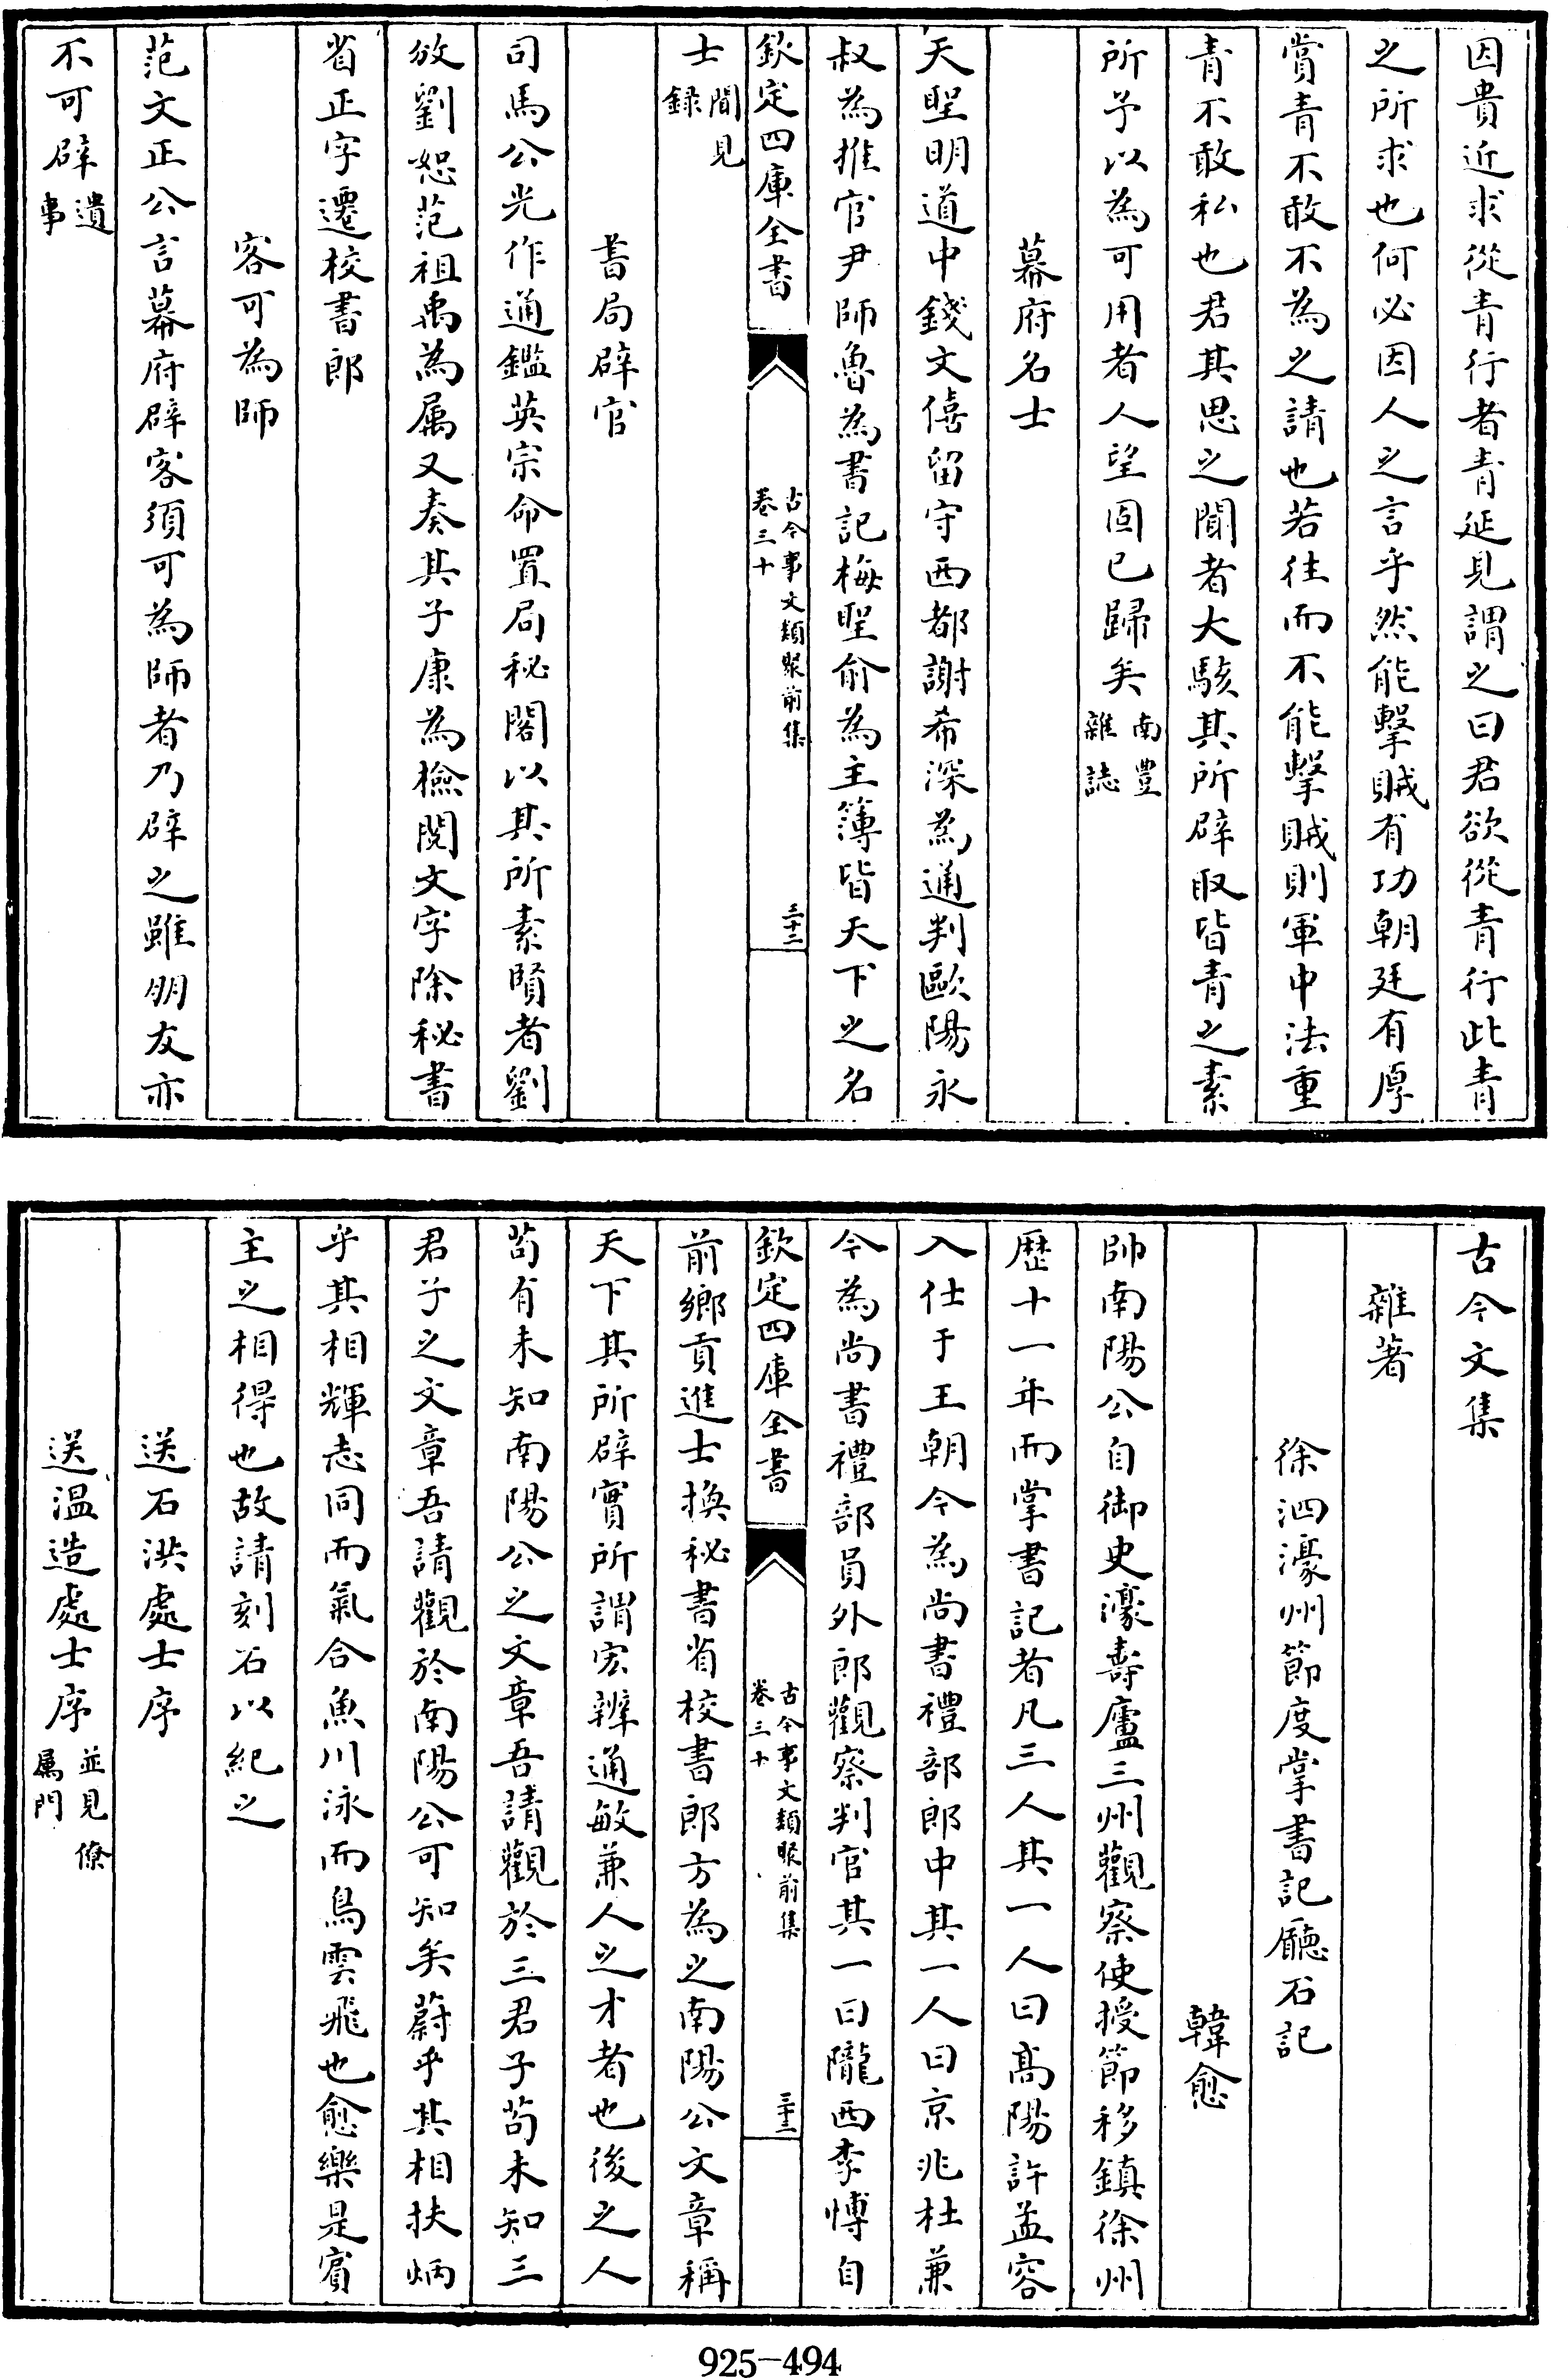 因貴近求從青行者青延見謂之曰君欲從青行此青
之所求也何必因人之言乎然能擊賊有功朝廷有厚
賞青不敢不為之請也若往而不能擊賊則軍中法重
青不敢私也君其思之聞者大駭其所辟取皆青之素
所予以為可用者人望固已歸矣南豐雜誌
幕府名士
天聖明道中錢文僖留守西都謝希深為通判歐陽永
叔為推官尹師魯為書記梅聖俞為主簿皆天下之名
欽定四庫全書
古今事文類聚前集
卷三十
三十二
士聞見録
書局辟官
司馬公光作通鑑英宗命置局秘閣以其所素賢者劉
攽劉恕范祖禹為属又奏其子康為檢閱文字除秘書
省正字遷校書郎
客可為師
范文正公言幕府辟客須可為師者乃辟之雖朋友亦
不可辟遺事
古今文集
雜著
徐泗濠州節度掌書記廳石記
韓愈
帥南陽公自御史濠壽廬三州觀察使授節移鎮徐州
歷十一年而掌書記者凡三人其一人曰髙陽許孟容
入仕于王朝今為尚書禮部郎中其一人曰京兆杜兼
今為尚書禮部員外郎觀察判官其一曰隴西李博自
欽定四庫全書
古今事文類聚前集
卷三十
三十三
前鄉貢進士換秘書省校書郎方為之南陽公文章稱
天下其所辟實所謂宏辨通敏兼人之才者也後之人
茍有未知南陽公之文章吾請觀於三君子茍未知三
君子之文章吾請觀於南陽公可知矣蔚乎其相扶炳
乎其相輝志同而氣合魚川泳而鳥雲飛也愈樂是賓
主之相得也故請刻石以紀之
送石洪處士序
送温造處士序並見僚属門
925-494